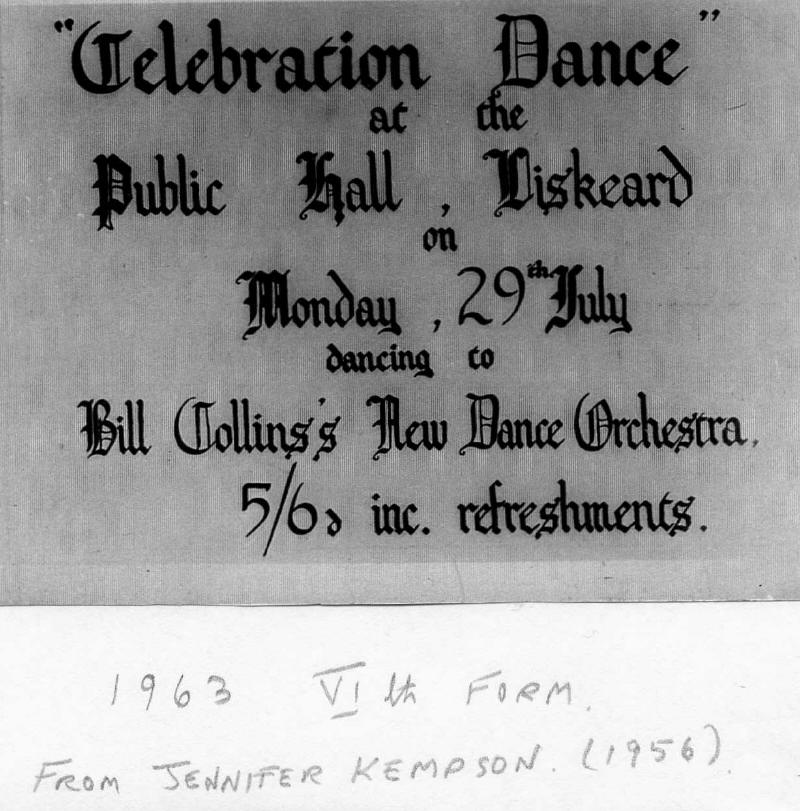 "Celebration Dance"
at the
Public Hall, Liskeard
on
Monday, 29th July
dancing to
Bill Collins's New Dance Orchestra.
5/6d inc. refreshments.
1963 VIth FORM.
FROM JENNIFER KEMPSON. (1956).